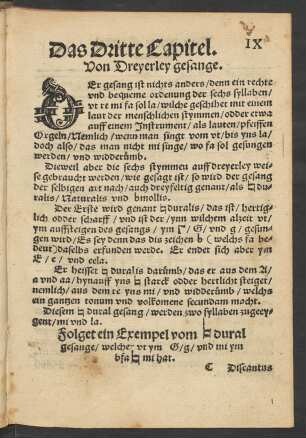 IX
Das Dritte Capitel.
Von Dreyerley gesange.
DEr gesang ist nichts anders/denn ein rechte
vnd bequeme ordenung der sechs syllaben/
vt re mi fa sol la/welche geschihet mit einem
laut der menschlichen stymmen/odder etwa
auff einem Instrument/als lauten/pfeiffen
Orgeln/Nemlich/wenn man singt vom vt/bis yns la/
doch also/das man nicht mi singe/wo fa sol gesungen
werden/vnd widderümb.
Dieweil aber die sechs stymmen auff dreyerley wei-
se gebraucht werden/wie gesagt ist/so wird der gesang
der selbigen art nach/auch dreyfeltig genant/als ♮ du-
ralis/Naturalis vnd bmollis.
Der Erste wird genant ♮ duralis/das ist/hertig-
lich odder scharff/vnd ist der/ynn wilchem alzeit vt/
ym auffsteigen des gesangs/ym Γ/G/vnd g/gesun-
gen wird/Es sey denn das dis zeichen b (welchs fa be-
deut) daselbs erfunden werde. Er endet sich aber ym
E/e/vnd eela.
Er heisset ♮ duralis darümb/das er aus dem A/
a vnd aa/hynauff yns ♮ starck odder hertlicht steiget/
nemlich/aus dem re yns mi/vnd widderümb/welchs
ein gantzen tonum vnd volkomene secundam macht.
Diesem ♮ dural gesang/werden zwo syllaben zugeey-
gent/mi vnd la.
Folget ein Exempel vom ♮ dural
gesange/welche vt ym G/g/vnd mi ym
bfa ♮ mi hat.
C Discantus